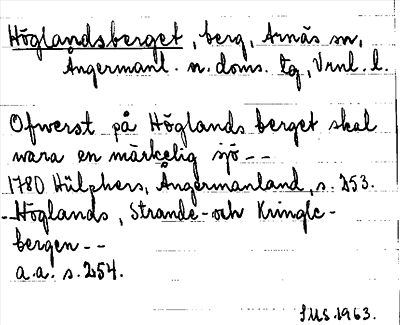 Höglandsberget, berg, Arnäs sn,
Ångermanl. n. doms. tg, Vrnl. l.
Ofwerst på Höglands berget skal
wara en märkelig sjö --
1780 Hülphers, Ångermanland, s. 253.
- Höglands, Strande- och Kringle-
bergen --
a.a. s. 254.
SMS. 1963.